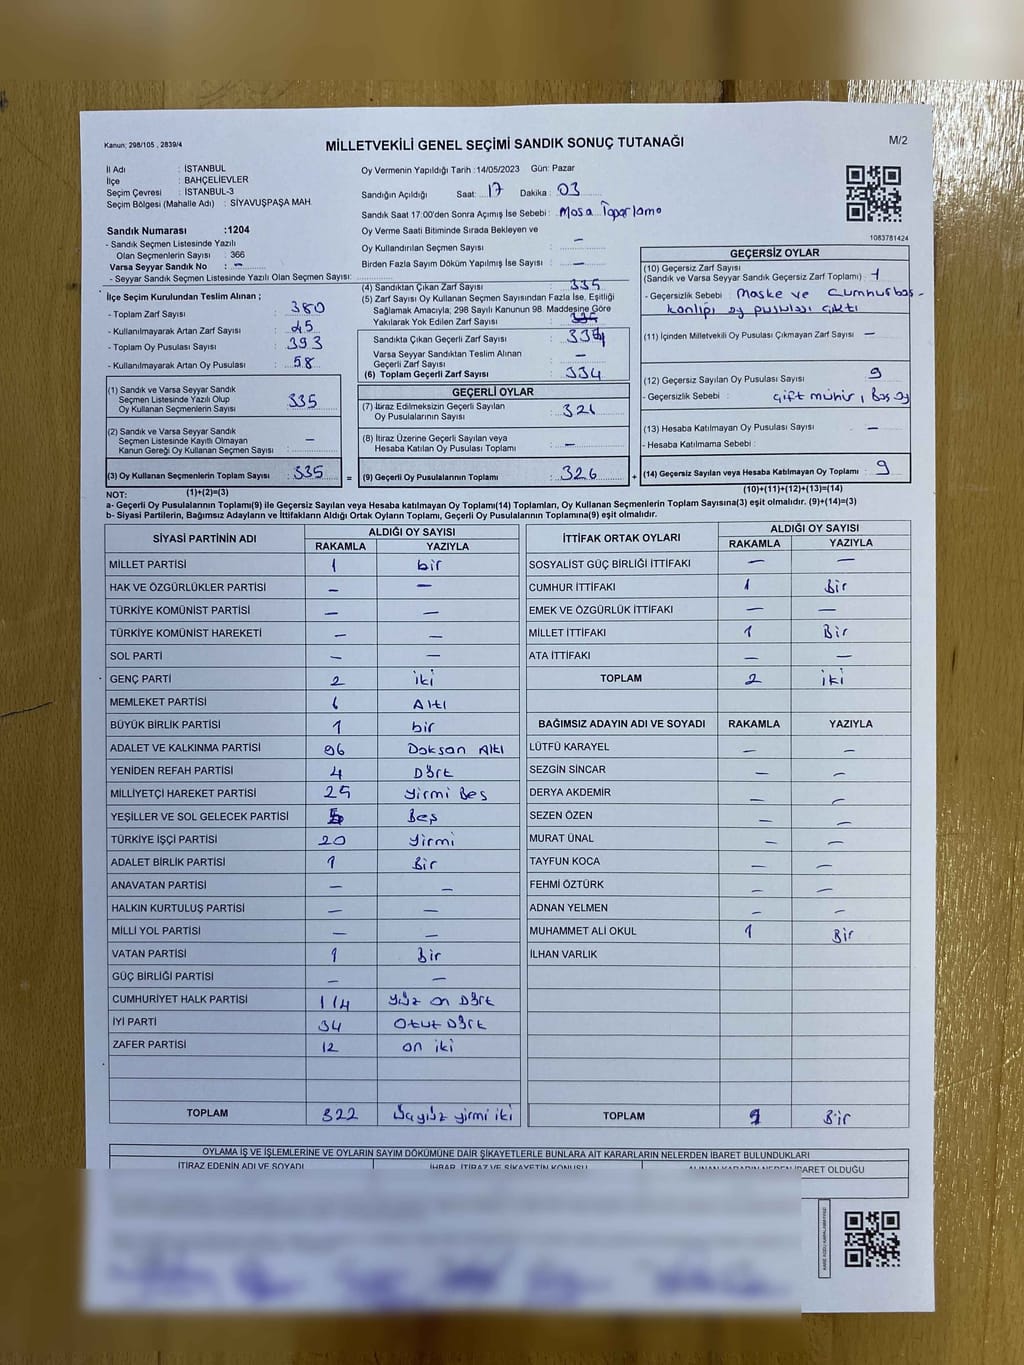 Kanun; 298/105 , 2839/4
MİLLETVEKİLİ GENEL SEÇİMİ SANDIK SONUÇ TUTANAĞI
M/2
İl Adı : İSTANBUL
İlçe : BAHÇELİEVLER
Seçim Çevresi : İSTANBUL-3
Seçim Bölgesi (Mahalle Adı) : SİYAVUŞPAŞA MAH.
Oy Vermenin Yapıldığı Tarih : 14/05/2023 Gün: Pazar
Sandığın Açıldığı Saat: 17 Dakika : 03
Sandık Saat 17:00'den Sonra Açımış İse Sebebi : Masa Toparlama
1083781424
Sandık Numarası :1204
- Sandık Seçmen Listesinde Yazılı
Olan Seçmenlerin Sayısı : 366
Varsa Seyyar Sandık No : –
- Seyyar Sandık Seçmen Listesinde Yazılı Olan Seçmen Sayısı:
Oy Verme Saati Bitiminde Sırada Bekleyen ve
Oy Kullandırılan Seçmen Sayısı : –
Birden Fazla Sayım Döküm Yapılmış İse Sayısı : –
İlçe Seçim Kurulundan Teslim Alınan ;
- Toplam Zarf Sayısı : 380
- Kullanılmayarak Artan Zarf Sayısı : 45
- Toplam Oy Pusulası Sayısı : 393
- Kullanılmayarak Artan Oy Pusulası : 58
(1) Sandık ve Varsa Seyyar Sandık
Seçmen Listesinde Yazılı Olup
Oy Kullanan Seçmenlerin Sayısı : 335
(2) Sandık ve Varsa Seyyar Sandık
Seçmen Listesinde Kayıtlı Olmayan
Kanun Gereği Oy Kullanan Seçmen Sayısı : –
(3) Oy Kullanan Seçmenlerin Toplam Sayısı : 335
(4) Sandıktan Çıkan Zarf Sayısı : 335
(5) Zarf Sayısı Oy Kullanan Seçmen Sayısından Fazla İse, Eşitliği
Sağlamak Amacıyla; 298 Sayılı Kanunun 98. Maddesine Göre
Yakılarak Yok Edilen Zarf Sayısı :
Sandıkta Çıkan Geçerli Zarf Sayısı : 334
Varsa Seyyar Sandıktan Teslim Alınan
Geçerli Zarf Sayısı : –
(6) Toplam Geçerli Zarf Sayısı : 334
GEÇERLİ OYLAR
(7) İtiraz Edilmeksizin Geçerli Sayılan
Oy Pusulalarının Sayısı : 326
(8) İtiraz Üzerine Geçerli Sayılan veya
Hesaba Katılan Oy Pusulası Toplamı : –
= (9) Geçerli Oy Pusulalarının Toplamı : 326
GEÇERSİZ OYLAR
(10) Geçersiz Zarf Sayısı
(Sandık ve Varsa Seyyar Sandık Geçersiz Zarf Toplamı) : 1
- Geçersizlik Sebebi : Maske ve Cumhurbaş-
kanlığı oy pusulası çıktı
(11) İçinden Milletvekili Oy Pusulası Çıkmayan Zarf Sayısı : –
(12) Geçersiz Sayılan Oy Pusulası Sayısı : 9
- Geçersizlik Sebebi : çift mühür, Boş oy
(13) Hesaba Katılmayan Oy Pusulası Sayısı : –
- Hesaba Katılmama Sebebi :
+ (14) Geçersiz Sayılan veya Hesaba Katılmayan Oy Toplamı : 9
NOT: (1)+(2)=(3) (10)+(11)+(12)+(13)=(14)
a- Geçerli Oy Pusulalarının Toplamı(9) ile Geçersiz Sayılan veya Hesaba katılmayan Oy Toplamı(14) Toplamları, Oy Kullanan Seçmenlerin Toplam Sayısına(3) eşit olmalıdır. (9)+(14)=(3)
b- Siyasi Partilerin, Bağımsız Adayların ve İttifakların Aldığı Ortak Oyların Toplamı, Geçerli Oy Pusulalarının Toplamına(9) eşit olmalıdır.
SİYASİ PARTİNİN ADI ALDIĞI OY SAYISI
RAKAMLA YAZIYLA
MİLLET PARTİSİ 1 bir
HAK VE ÖZGÜRLÜKLER PARTİSİ – –
TÜRKİYE KOMÜNİST PARTİSİ – –
TÜRKİYE KOMÜNİST HAREKETİ – –
SOL PARTİ – –
GENÇ PARTİ 2 iki
MEMLEKET PARTİSİ 6 Altı
BÜYÜK BİRLİK PARTİSİ 1 bir
ADALET VE KALKINMA PARTİSİ 96 Doksan Altı
YENİDEN REFAH PARTİSİ 4 Dört
MİLLİYETÇİ HAREKET PARTİSİ 25 Yirmi Beş
YEŞİLLER VE SOL GELECEK PARTİSİ 5 Beş
TÜRKİYE İŞÇİ PARTİSİ 20 Yirmi
ADALET BİRLİK PARTİSİ 1 Bir
ANAVATAN PARTİSİ – –
HALKIN KURTULUŞ PARTİSİ – –
MİLLİ YOL PARTİSİ – –
VATAN PARTİSİ 1 Bir
GÜÇ BİRLİĞİ PARTİSİ – –
CUMHURİYET HALK PARTİSİ 114 Yüz on Dört
İYİ PARTİ 34 Otuz Dört
ZAFER PARTİSİ 12 on iki
TOPLAM 322 Üçyüz yirmi iki
İTTİFAK ORTAK OYLARI ALDIĞI OY SAYISI
RAKAMLA YAZIYLA
SOSYALİST GÜÇ BİRLİĞİ İTTİFAKI – –
CUMHUR İTTİFAKI 1 Bir
EMEK VE ÖZGÜRLÜK İTTİFAKI – –
MİLLET İTTİFAKI 1 Bir
ATA İTTİFAKI – –
TOPLAM 2 iki
BAĞIMSIZ ADAYIN ADI VE SOYADI RAKAMLA YAZIYLA
LÜTFÜ KARAYEL – –
SEZGİN SİNCAR – –
DERYA AKDEMİR – –
SEZEN ÖZEN – –
MURAT ÜNAL – –
TAYFUN KOCA – –
FEHMİ ÖZTÜRK – –
ADNAN YELMEN – –
MUHAMMET ALİ OKUL 1 Bir
İLHAN VARLIK
TOPLAM 1 Bir
OYLAMA İŞ VE İŞLEMLERİNE VE OYLARIN SAYIM DÖKÜMÜNE DAİR ŞİKAYETLERLE BUNLARA AİT KARARLARIN NELERDEN İBARET BULUNDUKLARI
İTİRAZ EDENİN ADI VE SOYADI İHBAR, İTİRAZ VE ŞİKAYETİN KONUSU ALINAN KARARIN NEDEN İBARET OLDUĞU